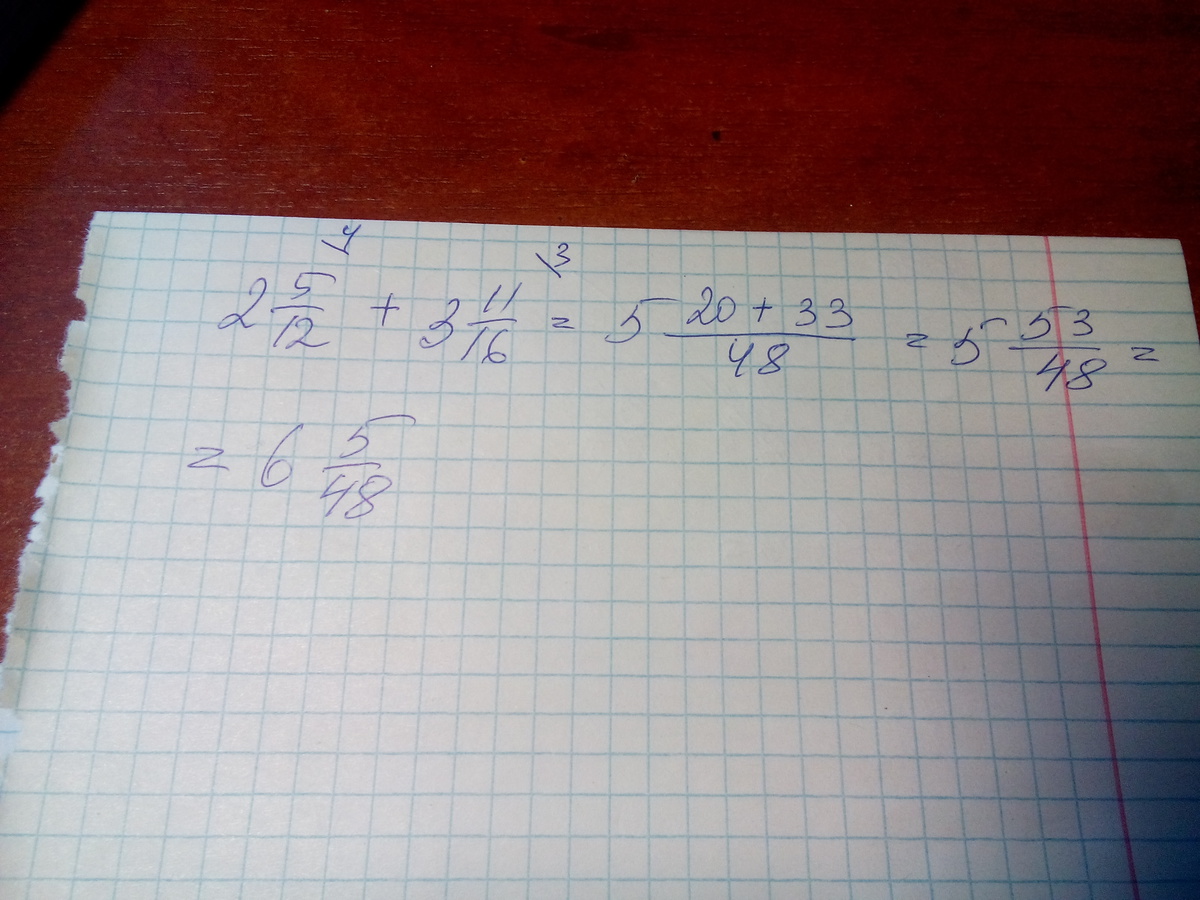 2 5/12 \4 + 3 11/16 \3 = 5 20 + 33/48 = 5 53/48 =
= 6 5/48